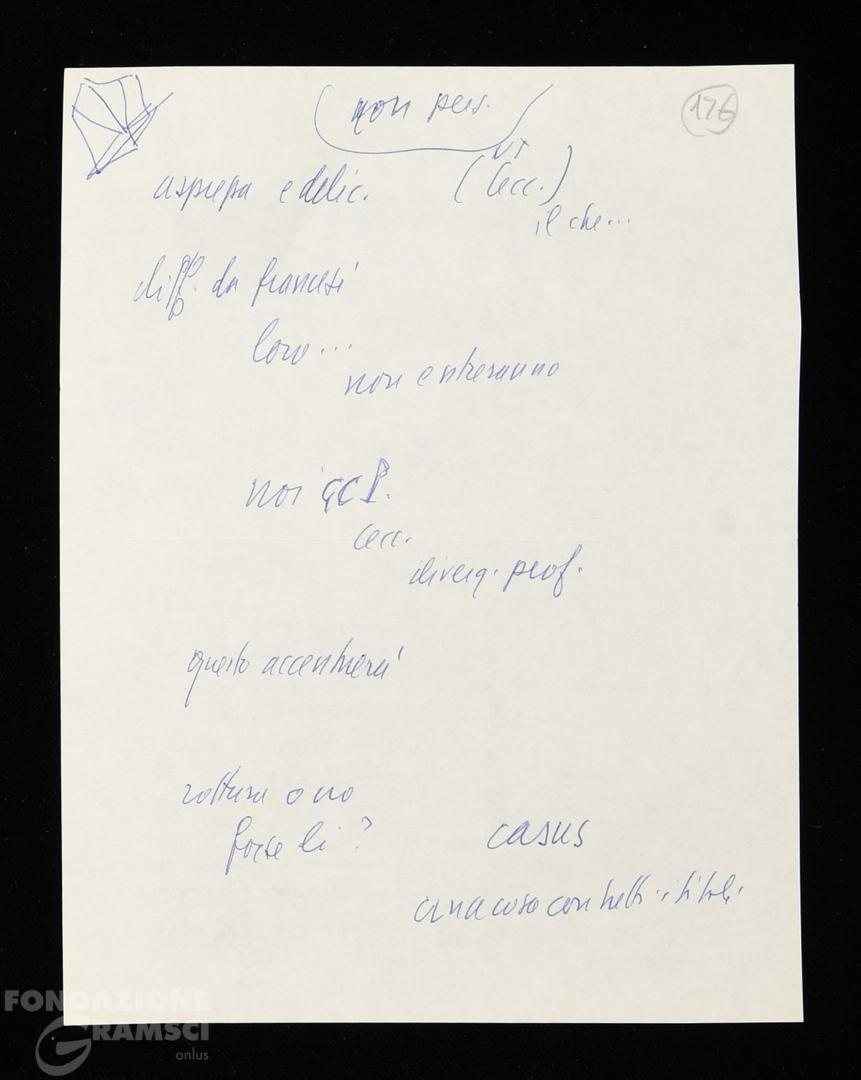 non pers.
126
aspra e delic.
(Cecc.)
il che...
diff. da francesi
loro...
non entreranno
noi
Cecc.
diverg. prof.
questo accentuerà
rottura o no
forse lì?
casus
una cosa con tutti i titoli
FONDAZIONE
GRAMSCI
onlus